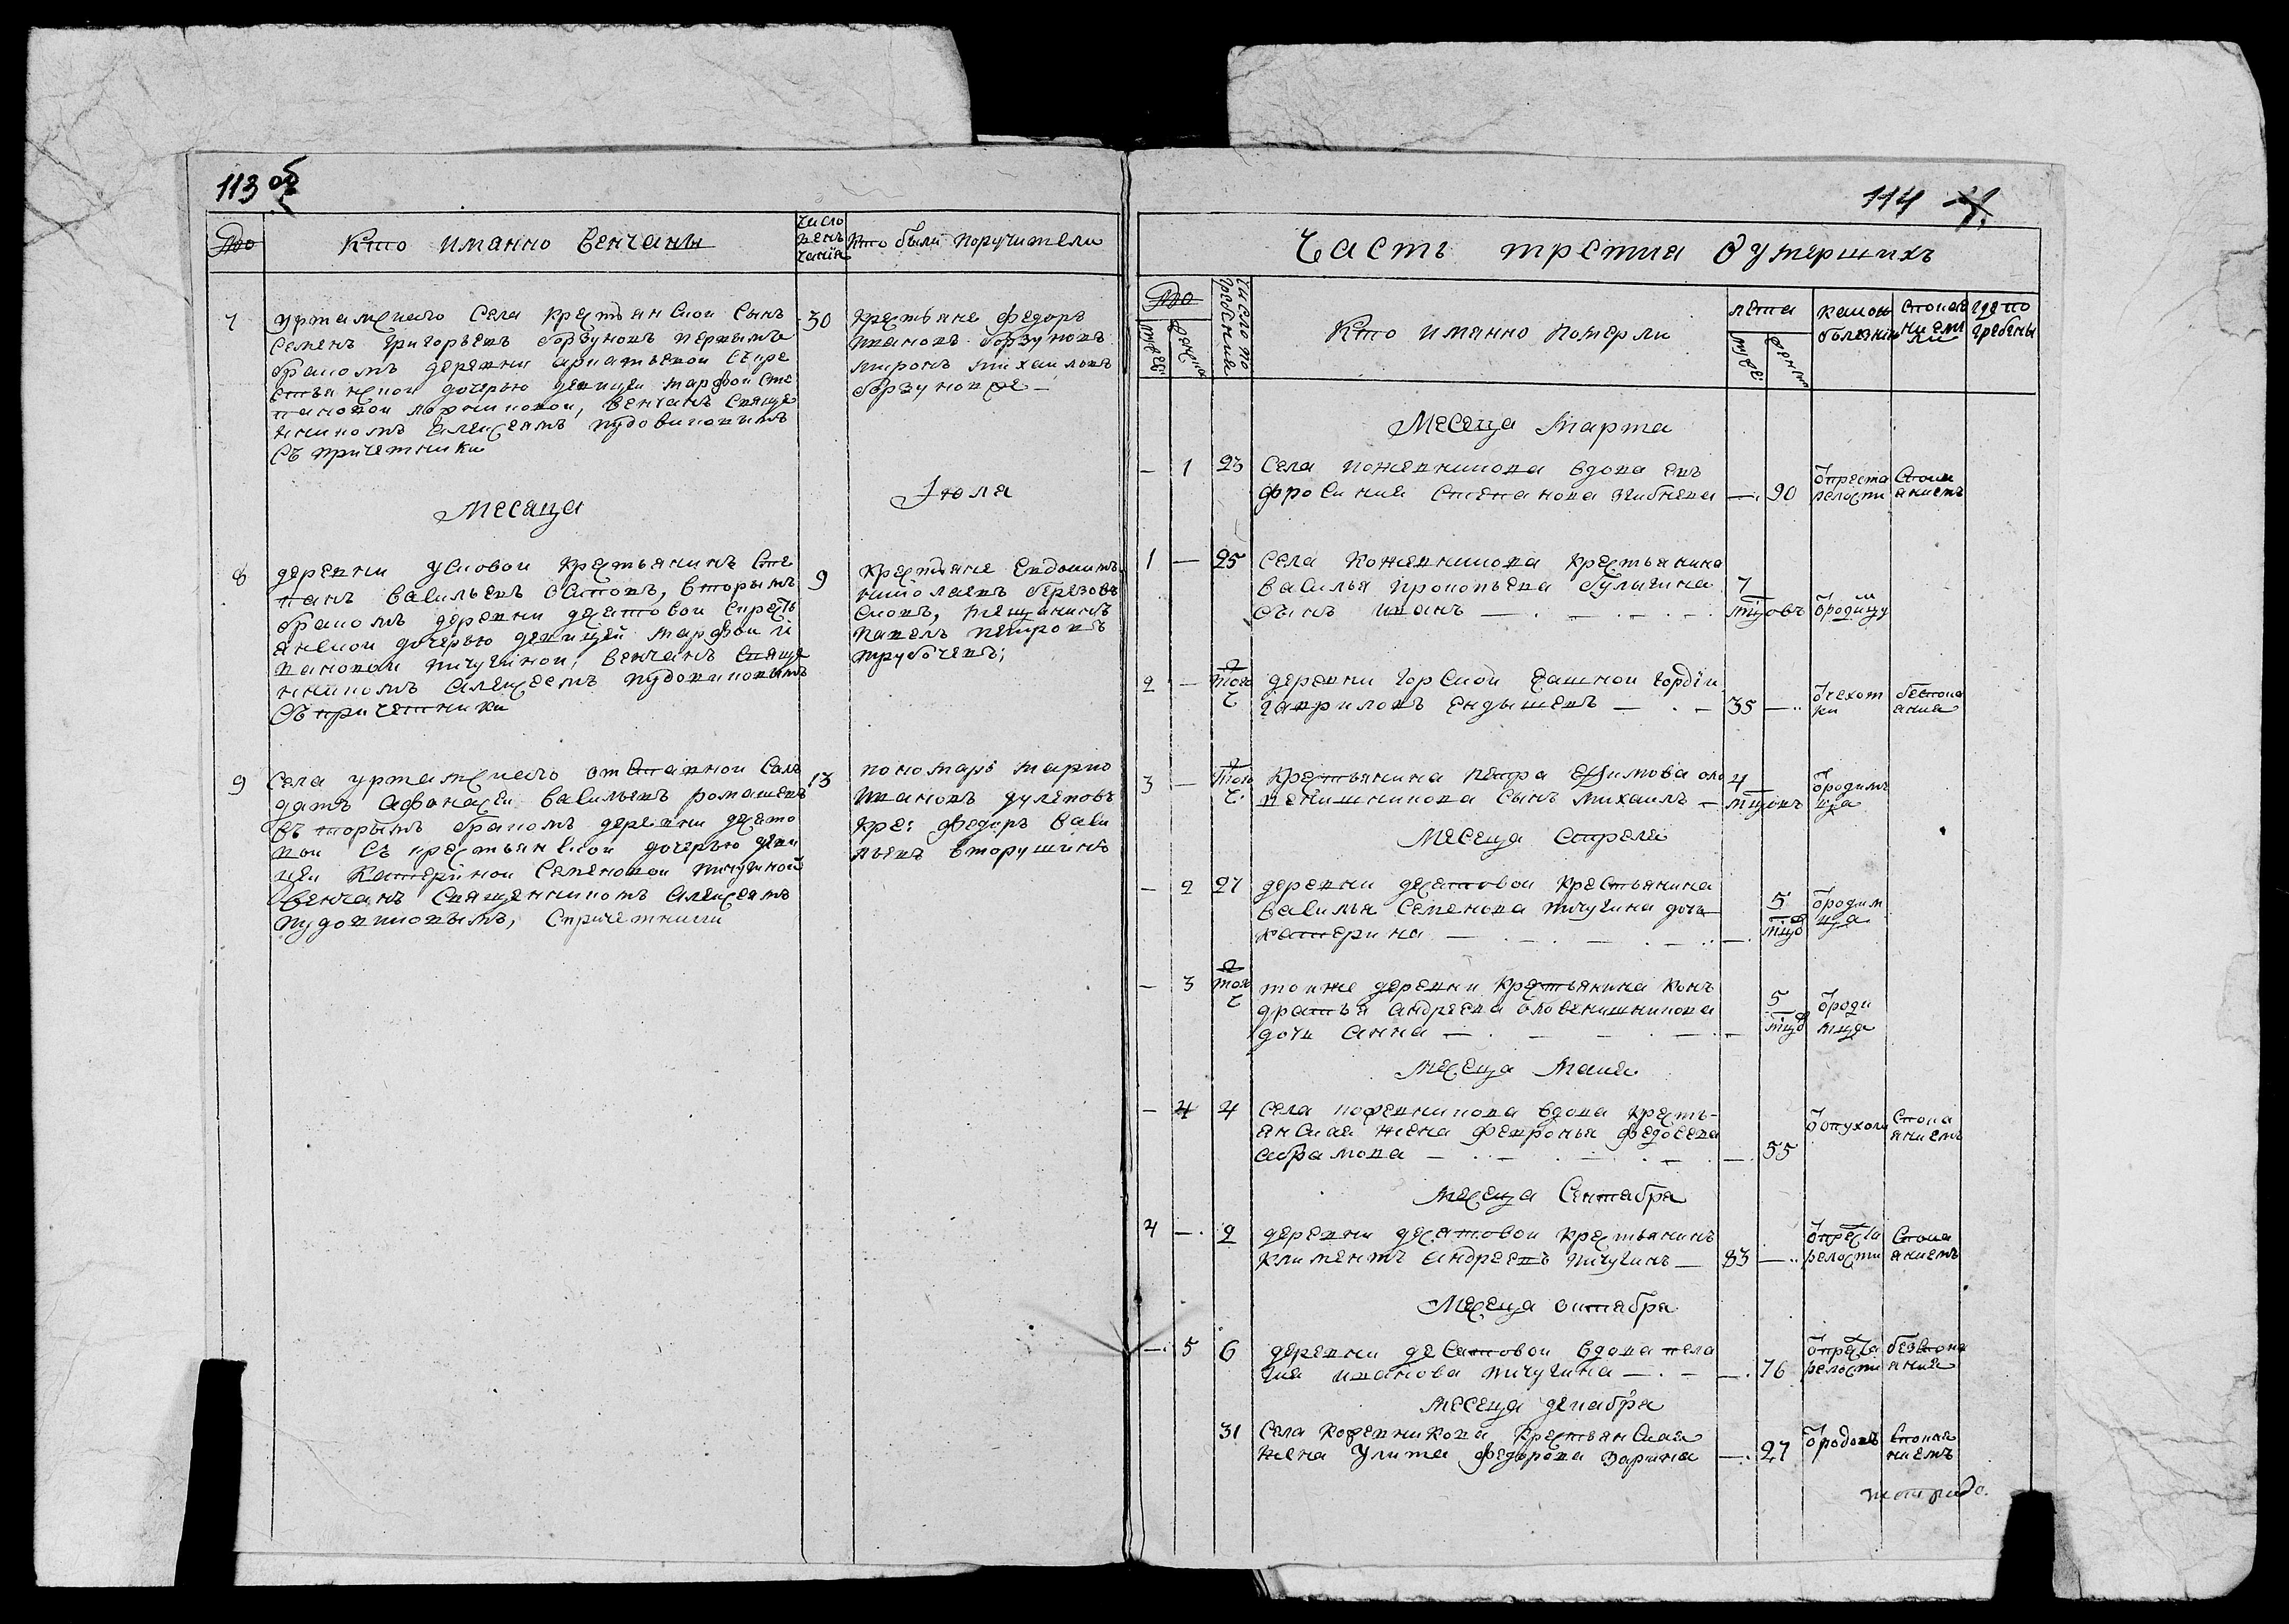 113 об
№
Кто имянно венчаны
число
вен
чания
Кто были поручители
7
Уртамского села крестьянской сынъ
30
Семенъ Григорьевъ Горбуновъ первымъ
бракомъ деревни
дочерью девицей Марфой Сте
пановой венчанъ свяще
нникомъ Алексеемъ Пудовиковымъ
съ причетники
крестьяне Федоръ
Ивановъ Горбуновъ
Миронъ Михайловъ
Месяца
Июля
8
деревни крестьянинъ Сте
9
панъ Васильевъ вторымъ
бракомъ деревни Десятовой съ кресть
янской дочерью девицей Марфой И
вановой Пичугиной, венчанъ свяще
нникомъ Алексеемъ Пудовиковымъ
съ причетники
крестьяне Евдокимъ
Николаевъ Березов
сковъ, мещанинъ
Павелъ Петровъ
Трубочевъ;
9
Села Уртамского отставной сол
13
датъ Афонасей Васильевъ Ромашевъ
вторымъ бракомъ деревни Десято
вой съ крестьянской дочерью деви
цей Катериной Семеновой Пичугиной
венчанъ священникомъ Алексеемъ
Пудовиковымъ, с причетники
пономарь Марко
Ивановъ Дулеповъ
кре: Федоръ Васи
льевъ Вторушинъ
114
Часть третия оумершихъ
№
число по
гребения
Кто имянно померли
лета
какою
болезнию
с покая
нием ли
где по
гребены
Месеца Марта
- 1 23 Села Кожевникова вдова Ев
фросиния Степанова - 90
от преста
релости
с пока
яниемъ
1 - 25 Села Кожевникова крестьянина
Василья Прокопьева Булыгина 7
сынъ Иванъ месяцовъ
родимцу
2 - того ч деревни Горской Гордей
Гавриловъ Ендышевъ 35 -
от чехот
ки
бес пока
яния
3 - того ч крестьянина Петра Ефимова Оло
4
венишникова сынъ Михаилъ - месяцовъ
от родим
ца
Месеца Апреля
- 2 27 деревни Десятовой крестьянина
Василья Семенова Пичугина дочь
5
Катерина
от родим
ца
- 3 того ч тоиже деревни крестьянина Кон
дратья Андреева Оловенишникова
5
дочь Анна
от роди
мца
Месеца Маия
- 4 4 Села Кожевникова вдова кресть-
янская жена Февронья Федосеева
Абрамова - 55
от опухоли
с пока
яниемъ
Месеца Сентабра
4 - 2 деревни Десятовой крестьянинъ
Климентъ Андреевъ Пичугинъ 83 -
от преста
релости
с пока
яниемъ
Месеца октябра
- 5 6 деревни Десятовой вдова Пела
гия Иванова Пичугина - 76
от преста
релости
без пока
яния
Месеца декабра
31 Села Кожевникова крестьянская
жена Улита Федорова Зарина - 27
от родовъ
с покая
ниемъ